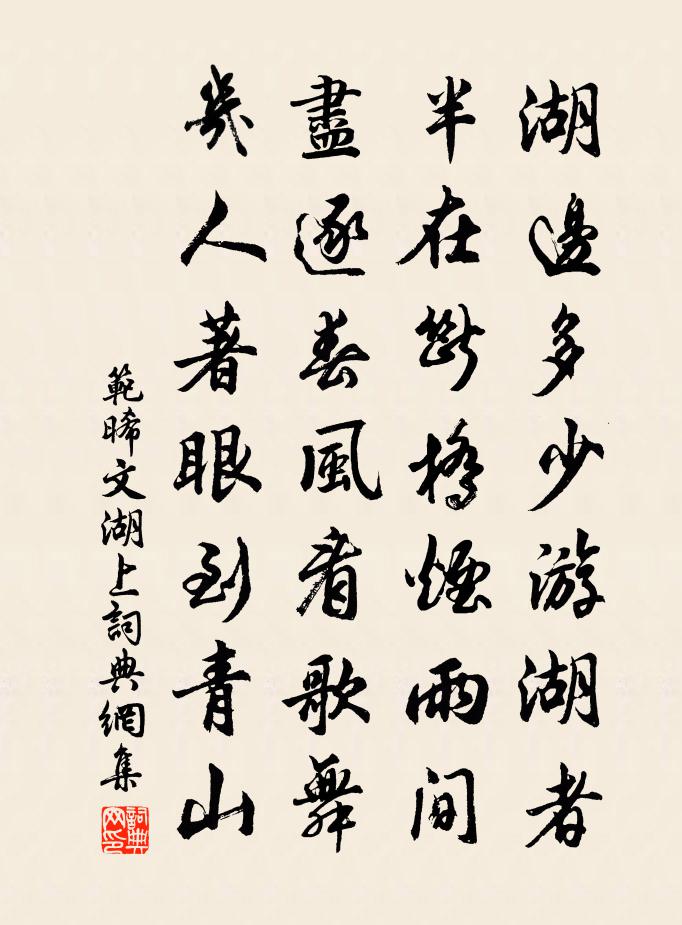 湖邊多少游湖者
半在斷橋煙雨間
盡逐春風看歌舞
幾人著眼到青山
範晞文湖上詞典網集
詞典网印